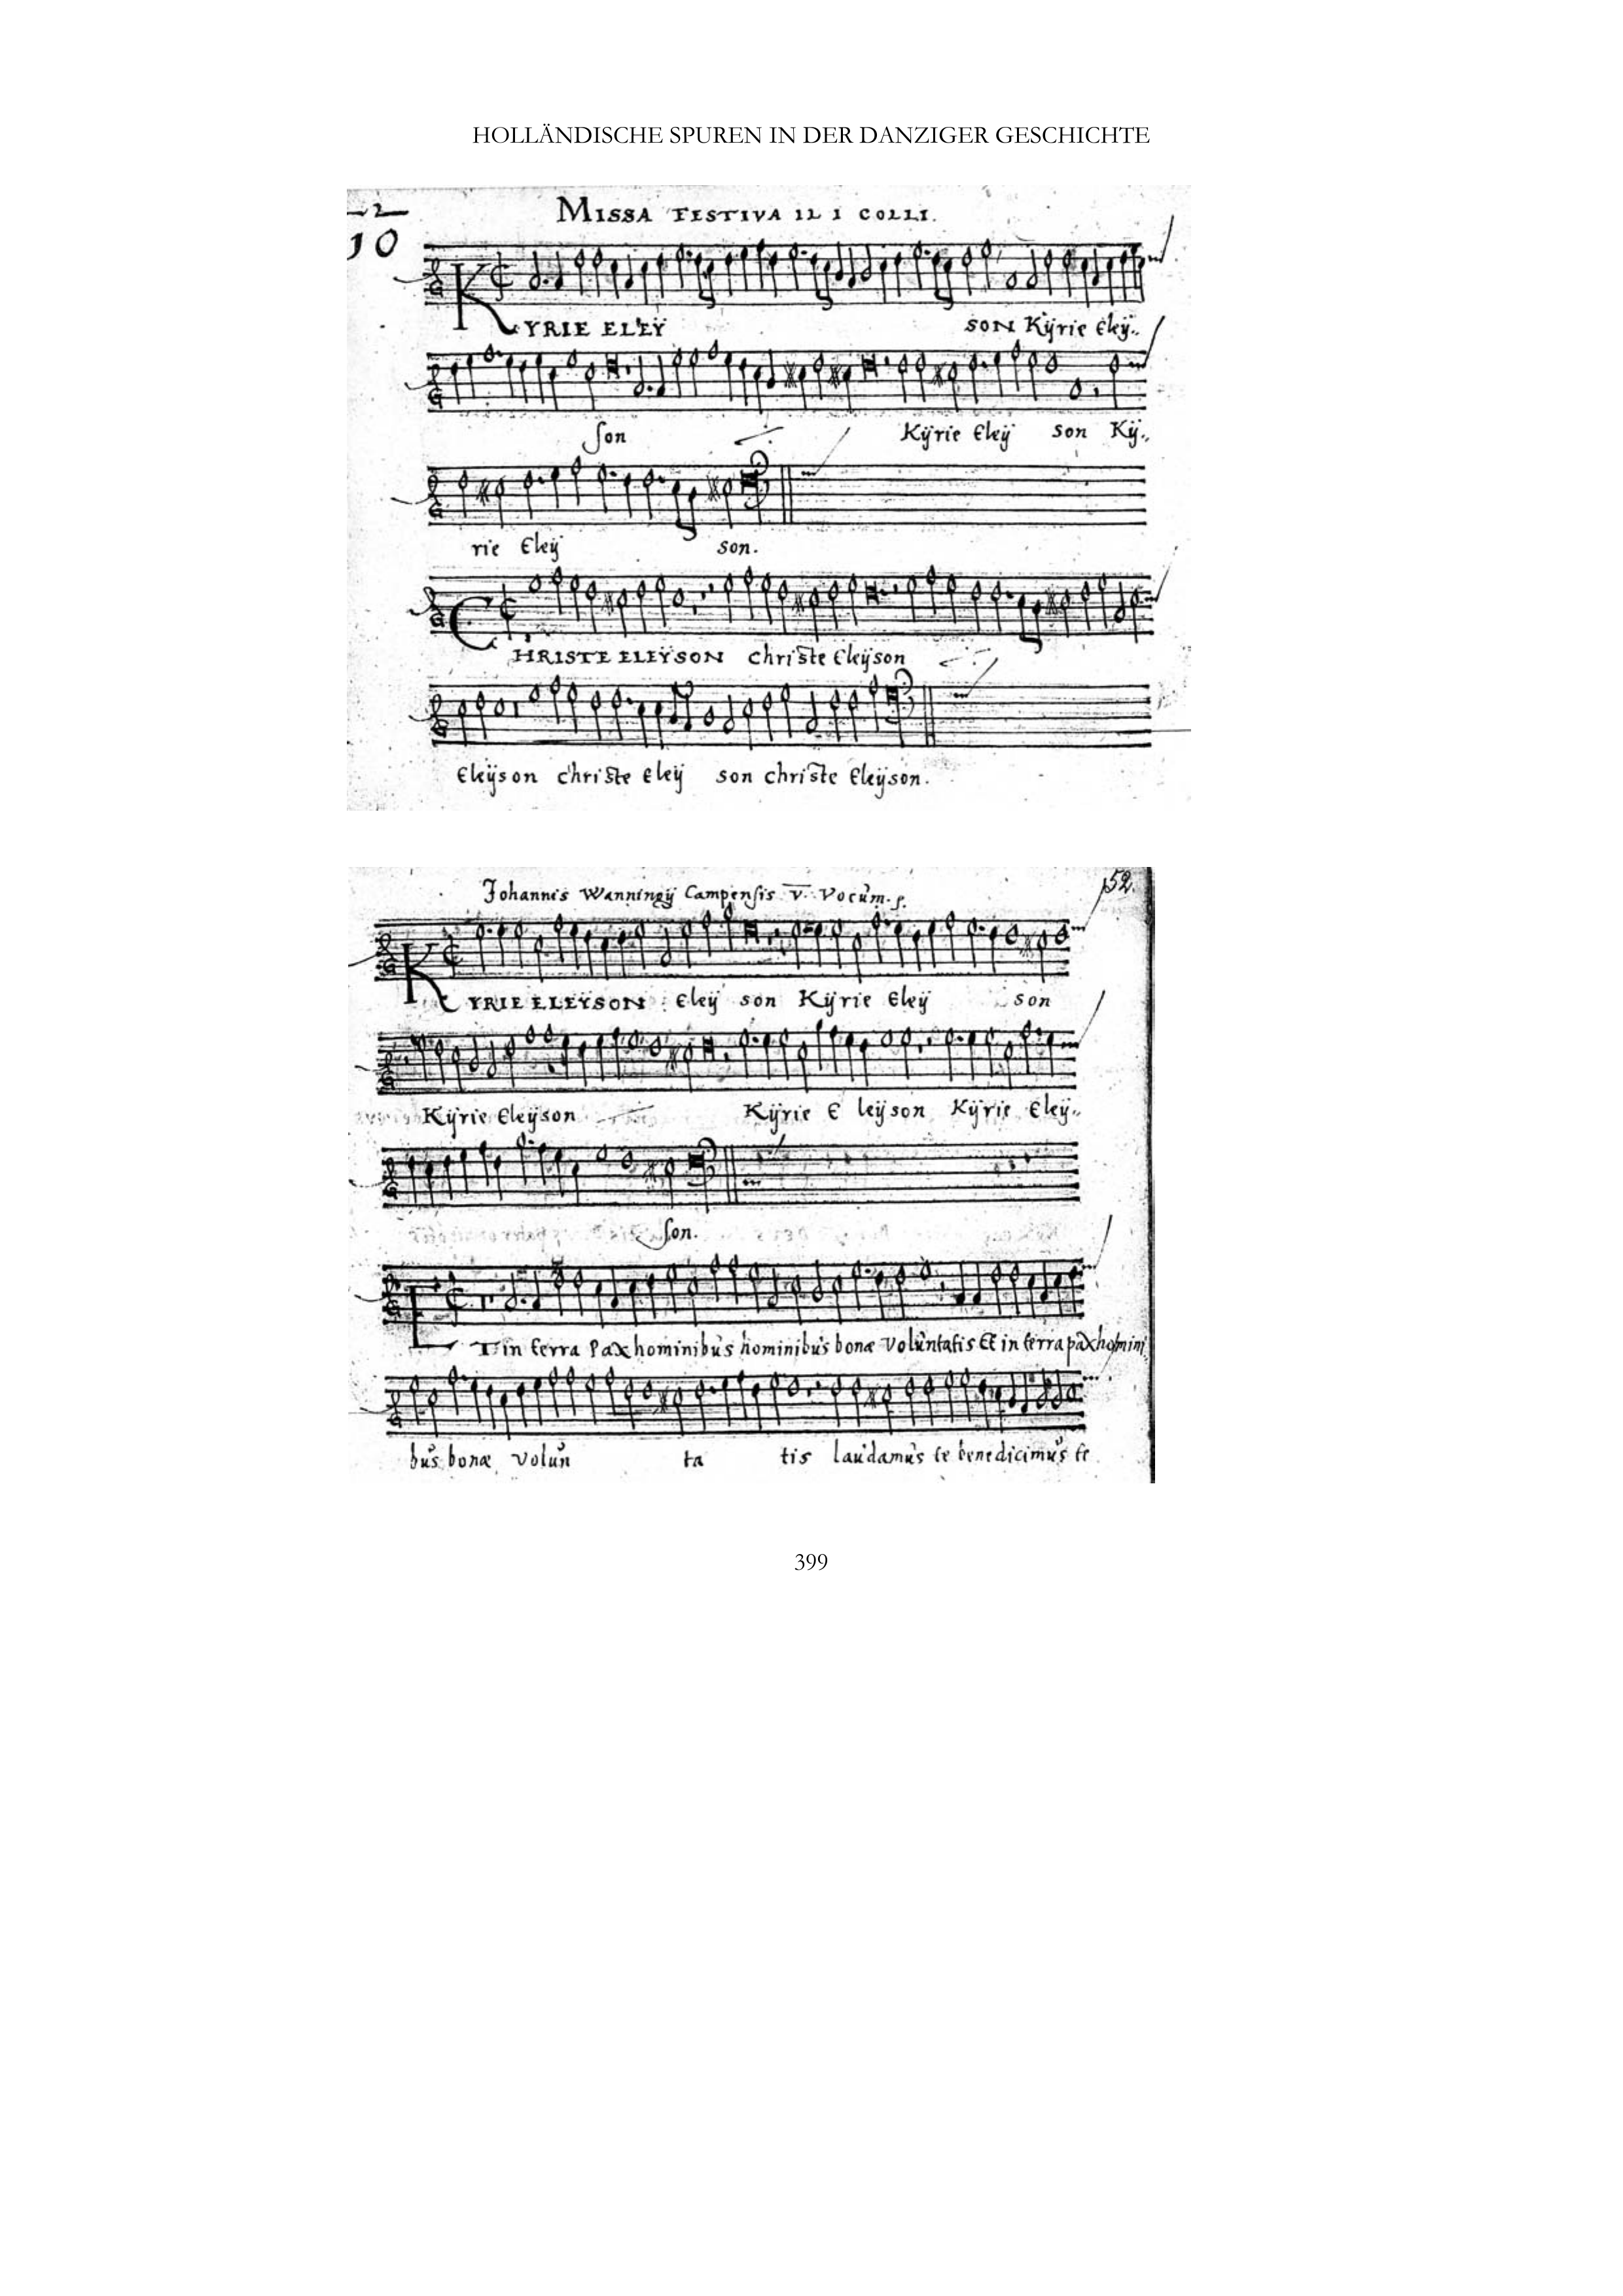 HOLLÄNDISCHE SPUREN IN DER DANZIGER GESCHICHTE
2
10
MISSA FESTIVA IL I COLLI.
KYRIE ELEŸ SON Kÿrie Eleÿ..
son Kÿrie Eleÿ son Kÿ..
rie Eleÿ son.
CHRISTE ELEŸSON christe Eleÿson
Eleÿson christe Eleÿ son christe Eleÿson.
Johannis Wanningÿ Campensis v. Vocum.
152.
KYRIE ELEŸSON : Eleÿ son Kÿrie Eleÿ son
Kÿrie Eleÿson Kÿrie E leÿson Kÿrie Eleÿ..
son.
ET in terra Pax hominibus hominibus bonæ Voluntatis Et in terra pax homini
bus bonæ volun ta tis laudamus te benedicimus te
399